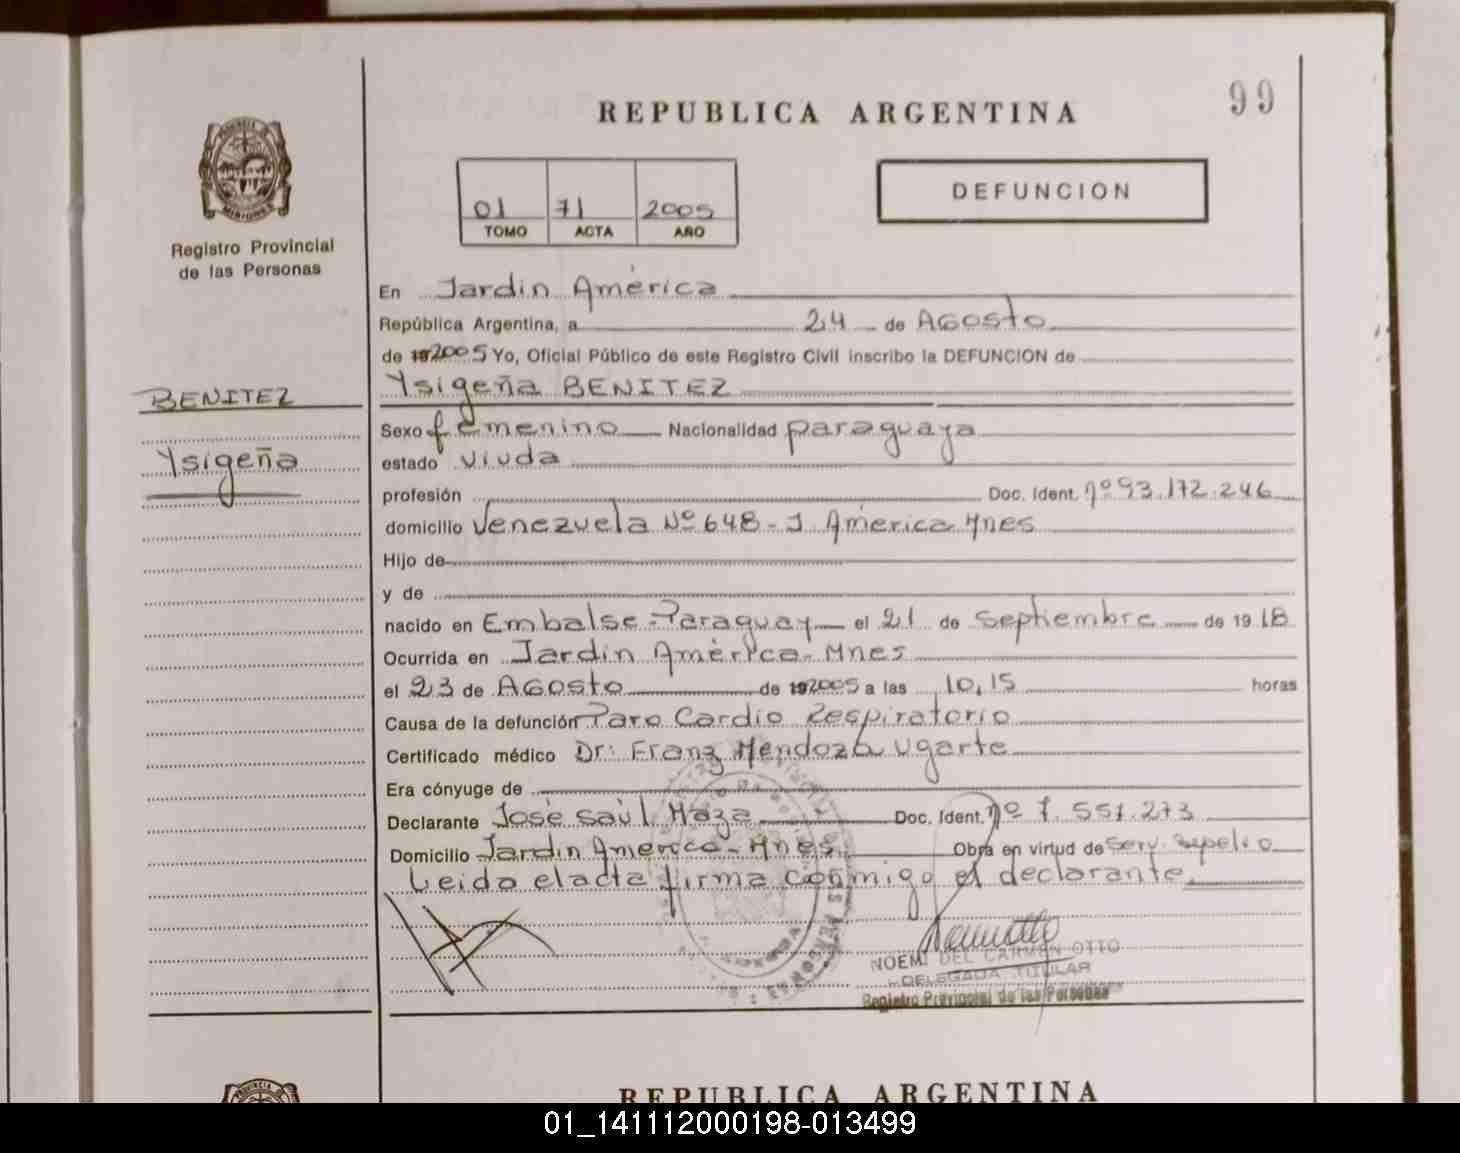 REPUBLICA ARGENTINA
99
PROVINCIA DE
MISIONES
Registro Provincial
de las Personas
01 71 2005
TOMO ACTA AÑO
DEFUNCION
En Jardín América
República Argentina, a 24 de Agosto
de 2005 Yo, Oficial Público de este Registro Civil inscribo la DEFUNCION de
BENITEZ
Ysigeña
Ysigeña BENITEZ
Sexo femenino Nacionalidad paraguaya
estado viuda
profesión Doc. Ident. nº 93.172.246
domicilio Venezuela Nº 648 - J América Mnes
Hijo de
y de
nacido en Embalse - Paraguay el 21 de septiembre de 1918
Ocurrida en Jardín América - Mnes
el 23 de Agosto de 2005 a las 10,15 horas
Causa de la defunción Paro Cardio Respiratorio
Certificado médico Dr: Franz Mendoza Ugarte
Era cónyuge de
Declarante José Saúl Maza Doc. Ident. nº 7.551.273
Domicilio Jardín América - Mnes Obra en virtud de Serv. Sepelio
Leida el acta firma conmigo el declarante.
NOEMI DEL CARMEN OTTO
DELEGADA TITULAR
Registro Provincial de las Personas
PROVINCIA
REPUBLICA ARGENTINA
01_141112000198-013499